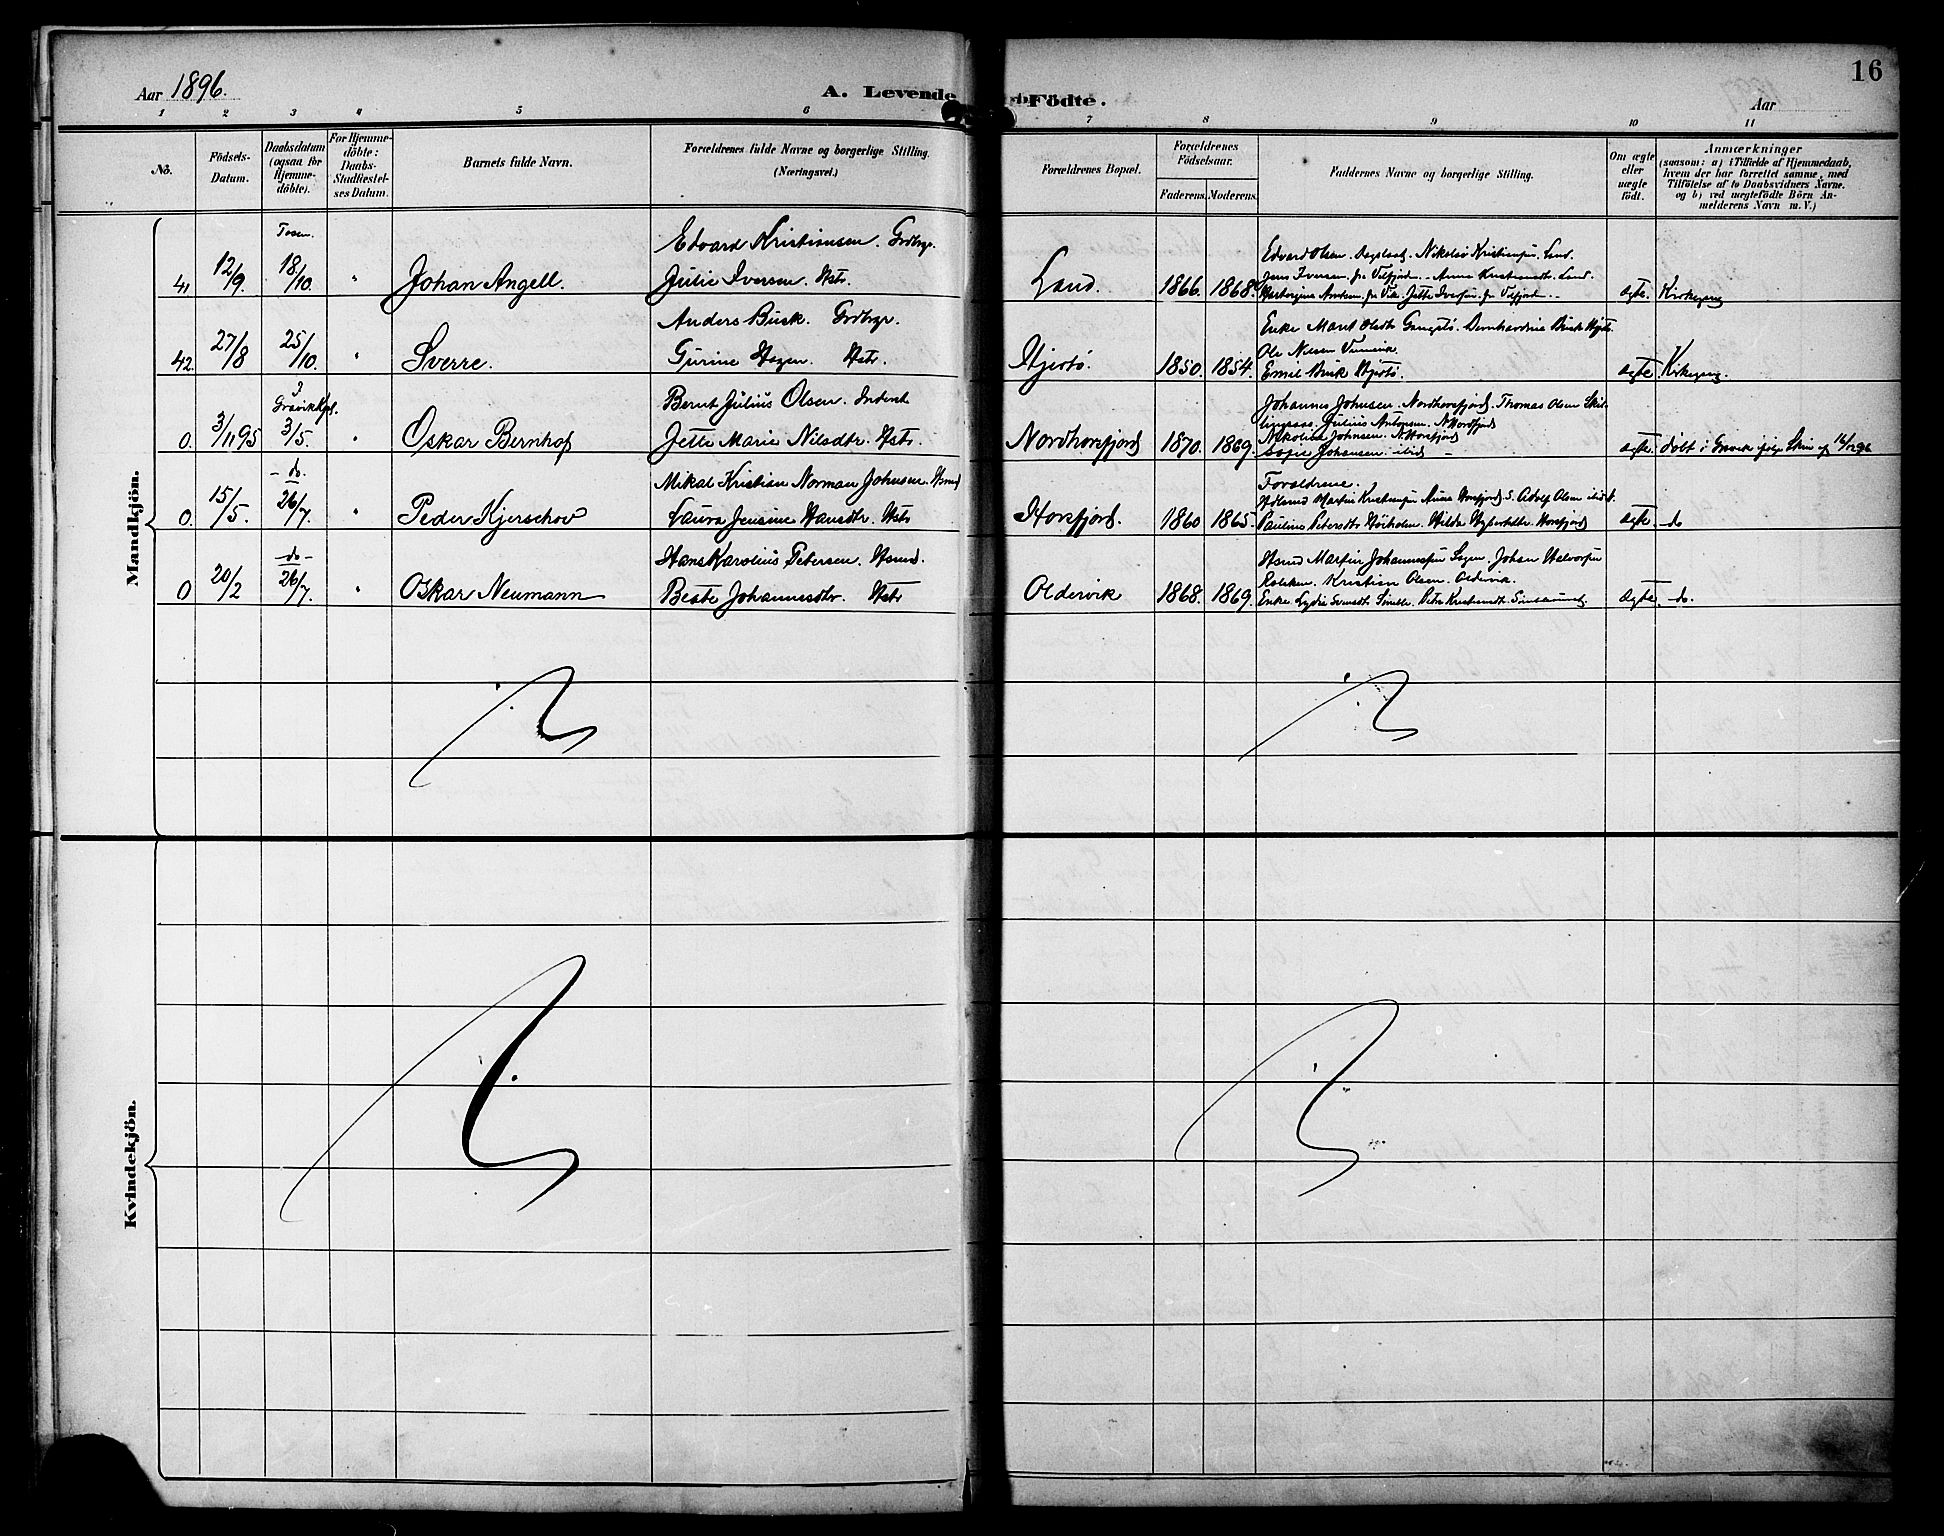 Aar 1896.
A. Levende Födte.
16
Aar
1 2 3 4 5 6 7 8 9 10 11
No.
Födsels-Datum.
Daabsdatum (ogsaa for Hjemme-döbte).
For Hjemme-döbte: Daabs-Stadfæstel-ses Datum.
Barnets fulde Navn.
Forældrenes fulde Navne og borgerlige Stilling. (Næringsvei.)
Forældrenes Bopæl.
Forældrenes Födselsaar.
Faderens. Moderens.
Faddernes Navne og borgerlige Stilling.
Om ægte eller uægte födt.
Anmærkninger
(saasom: a) i Tilfælde af Hjemmedaab,
hvem der har forrettet samme, med
Tilföielse af to Daabsvidners Navne.
og b) ved uægtefödte Börn An-
melderens Navn m. V.)
Mandkjön.
Tosen.
41 12/9 18/10 " Johan Angell.
Edvard Kristiansen. Grdbrgr.
Julie Iversen. Hstr.
Land. 1866. 1868.
Edvard Olsen. Nikolai Kristiansen Land.
Jens Iversen. fra Velfjord. Anna Kristiansdt. Land.
ægte. Kirkegang
42. 27/8 25/10. " Sverre.
Anders Busk. Grdbrgr.
Gurine Hagen. Hstr.
1850. 1854.
Enke Maret Olsdtr
Ole Nilsen
Emil Busk
ægte Kirkegang.
Gravik Kpl.
0. 3/11 95 3/5. " Oskar Bernhof
Bernt Julius Olsen. Inderst
Jette Marie Nilsdtr. Hstr.
Nordhorsfjord 1870. 1869.
Johannes Johnsen. Nordhorsfjord. Thomas Olsen
Julius Antonsen. N.Horsfjord
Nikoline Johnsen. N.Horsfjord
Sofie Johansen. ibid
ægte. døbt i Gravik
- do.
0. 15/5. 26/7. " Peder Kjerschov
Mikal Kristian Norman Johnsen. Hsmd
Laura Jensine Hansdtr. Hstr
Horsfjord. 1860 1865.
Forældrene.
Martin Kristiansen Adolf Olsen ibid
Pauline Petersdtr Hilda Horsfjord
ægte. - do
- do -
0 20/2 26/7. " Oskar Neumann
Hans Karolius Petersen. Hsmd.
Berte Johannesdtr. Hstr
Oldervik 1868. 1869.
Hsmd Martin Johannessen Johan Halvorsen
Kristian Olsen. Oldervik.
Enke Lydia
ægte. - do.
Kvindekjön.